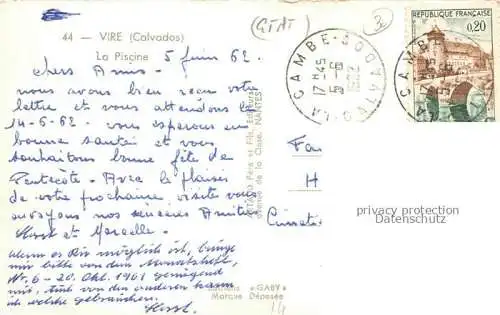 44 - VIRE (Calvados)
La Piscine
(STAT)
3
5 Juin 62.
chers Amis -
nous avons bien reçu votre
lettre et vous attendons le
14-6-62. vous esperons en
bonne santé et vous
souhaitons bonne fête de
Pentecôte - Avec le plaisir
de votre prochaine visite vous
envoyons nos sincères Amitiés
Horst et Marcelle -
Wenn es Dir möglich ist, bringe
mir bitte von dem Monatsheft,
Nr. 6 - 20. Okt. 1961 genügend
mit, von den anderen kann
ich welche gebrauchen.
Horst.
RÉPUBLIQUE FRANÇAISE
0,20
LA CAMBE
CALVADOS
17H45
5-6
1962
Père et Fils, Éditeurs
avenue de la Close, NANTES
Fa
H
privacy protection
Datenschutz
"GABY"
Marque Déposée
14